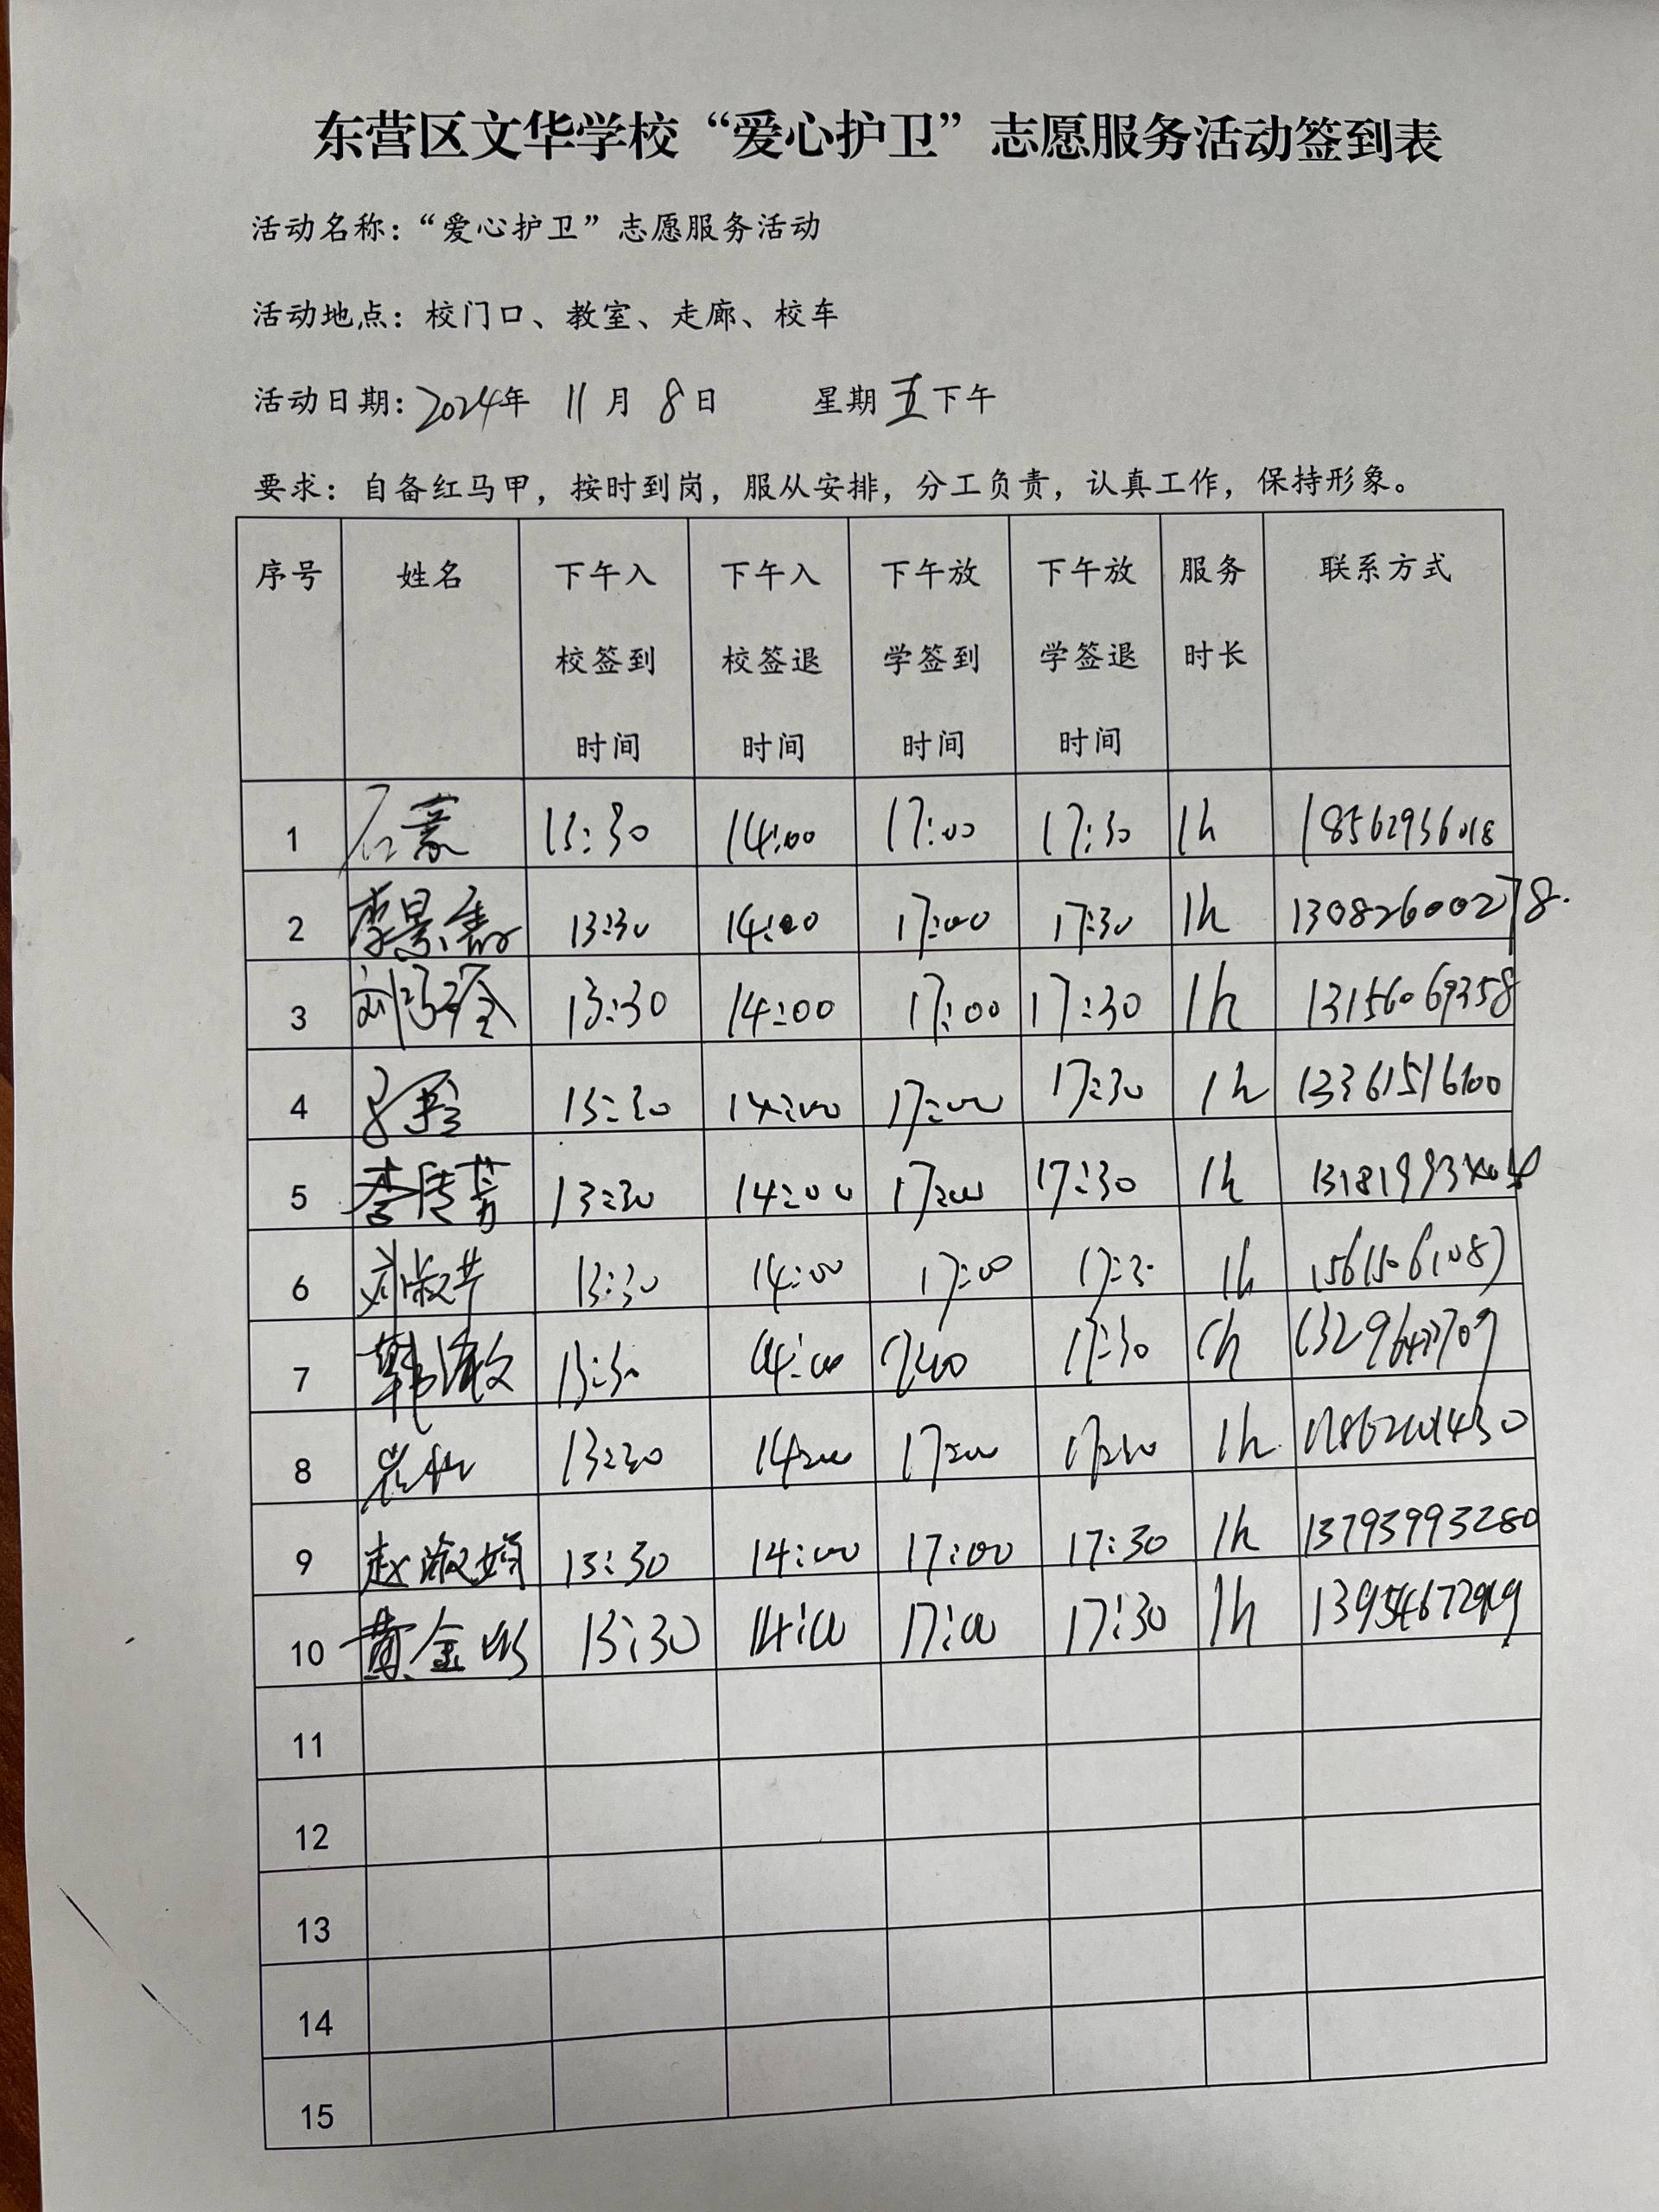 东营区文华学校“爱心护卫”志愿服务活动签到表
活动名称：“爱心护卫”志愿服务活动
活动地点：校门口、教室、走廊、校车
活动日期：2024年 11月 8日 星期五下午
要求：自备红马甲，按时到岗，服从安排，分工负责，认真工作，保持形象。
序号 姓名 下午入校签到时间 下午入校签退时间 下午放学签到时间 下午放学签退时间 服务时长 联系方式
1 13:30 14:00 17:00 17:30 1h
2 13:30 14:00 17:00 17:30 1h 13082600278.
3 13:30 14:00 17:00 17:30 1h 13156069358
4 13:30 14:00 17:00 17:30 1h 13361516100
5 李传芳 13:30 14:00 17:00 17:30 1h
6 刘淑芹 13:30 14:00 17:00 17:30 1h 15615061087
7 韩淑文 13:30 14:00 17:00 17:30 1h
8 13:30 14:00 17:00 17:30 1h
9 赵淑娟 13:30 14:00 17:00 17:30 1h 13793993280
10 黄金 13:30 14:00 17:00 17:30 1h
11
12
13
14
15